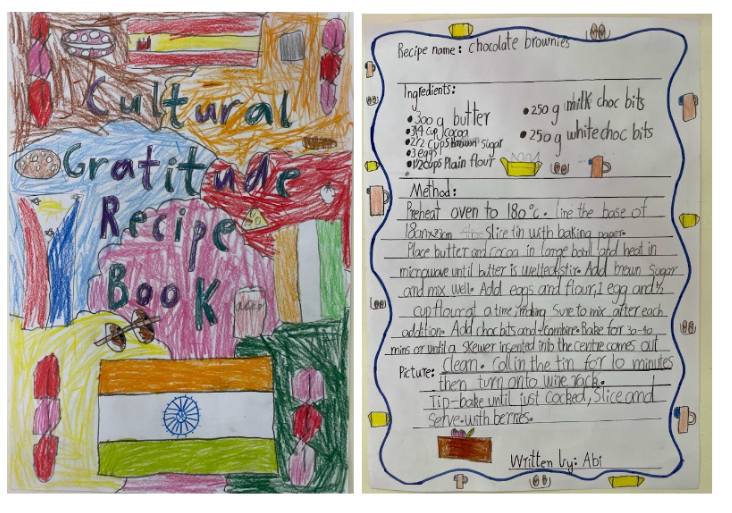 Cultural
Gratitude
Recipe
Book
Recipe name: chocolate brownies
Ingredients:
•300 g butter
•3/4 cup cocoa
•2 1/2 cups brown sugar
•3 eggs
•1 1/2 cups Plain flour
•250 g milk choc bits
•250 g white choc bits
Method:
Preheat oven to 180°c. line the base of
slice tin with baking paper.
Place butter and cocoa in large bowl and heat in
microwave until butter is melted. stir. Add brown sugar
and mix well. Add eggs and flour, 1 egg and 1/2
cup flour at a time, making sure to mix after each
addition. Add choc bits and combine. Bake for 30-40
mins or until a skewer inserted into the centre comes out
clean. Coll in the tin for 10 minutes
Picture:
then turn onto wire rack.
Tip-bake until just cocked, Slice and
Serve with berries.
Written by: Abi